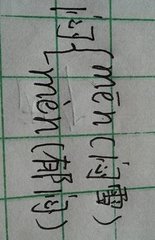 闷{mēn(闷雷)
mèn(郁闷)